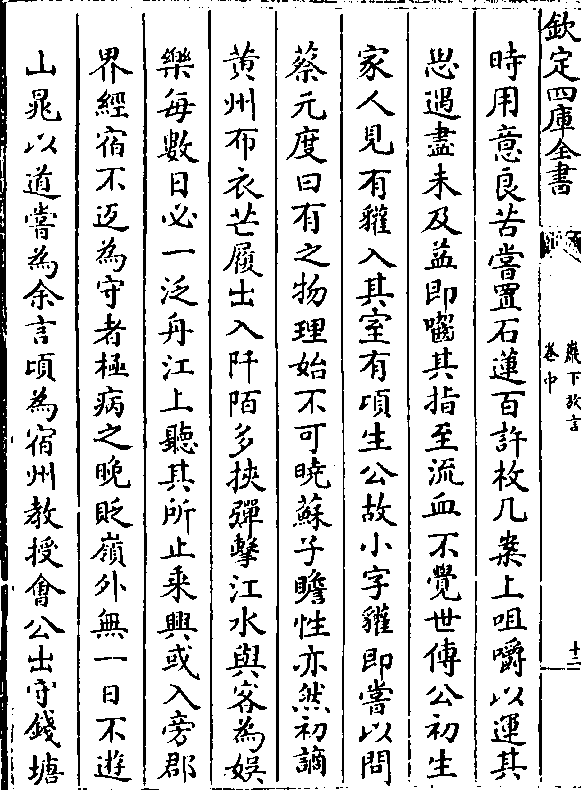 欽定四庫全書
巖下放言
卷中
十二
時用意良苦嘗置石蓮百許枚几案上咀嚼以運其
思遇盡未及益即囓其指至流血不覺世傳公初生
家人見有貛入其室有頃生公故小字貛即嘗以問
蔡元度曰有之物理始不可曉蘇子瞻性亦然初謫
黄州布衣芒屨出入阡陌多挾彈擊江水與客為娯
樂每數日必一泛舟江上聽其所止乘興或入旁郡
界經宿不返為守者極病之晚貶嶺外無一日不遊
山晁以道嘗為余言頃為宿州教授㑹公出守錢塘